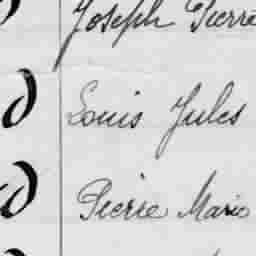 Joseph Pierre
d Louis Jules
d Pierre Mario